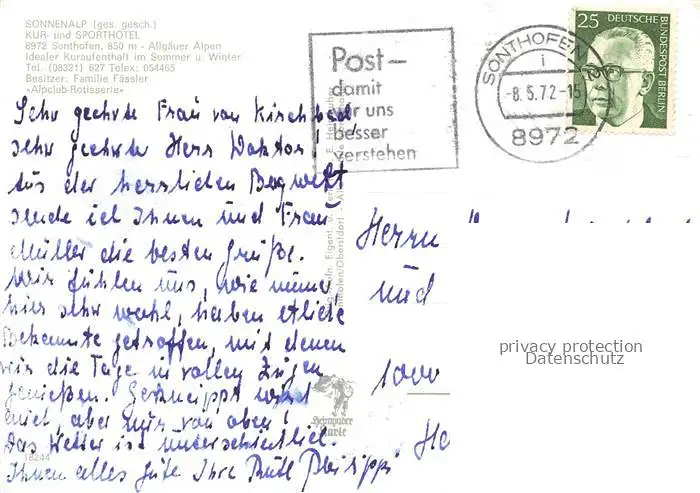 SONNENALP (ges. gesch.)
KUR- und SPORTHOTEL
8972 Sonthofen, 850 m - Allgäuer Alpen
Idealer Kuraufenthalt im Sommer u. Winter
Tel. (08321) 627 Telex: 054465
Besitzer: Familie Fässler
»Alpclub-Rotisserie«
Post–
damit
wir uns
besser
verstehen
SONTHOFEN
i
-8.5.72-15
8972
25 DEUTSCHE
BUNDESPOST BERLIN
Sehr geehrte Frau von Kirchbach,
sehr geehrter Herr Doktor!
Aus der herrlichen Bergwelt
sende ich Ihnen und Frau
Müller die besten Grüße.
Wir fühlen uns, wie immer
hier sehr wohl, haben etliche
Bekannte getroffen, mit denen
wir die Tage in vollen Zügen
genießen. Gekneippt wird
auch, aber nur von oben!
Das Wetter ist unterschiedlich.
Ihnen alles Gute Ihre Ruth
Herrn
und
1000
He
privacy protection
Datenschutz
Heimhuber
Karte
18244